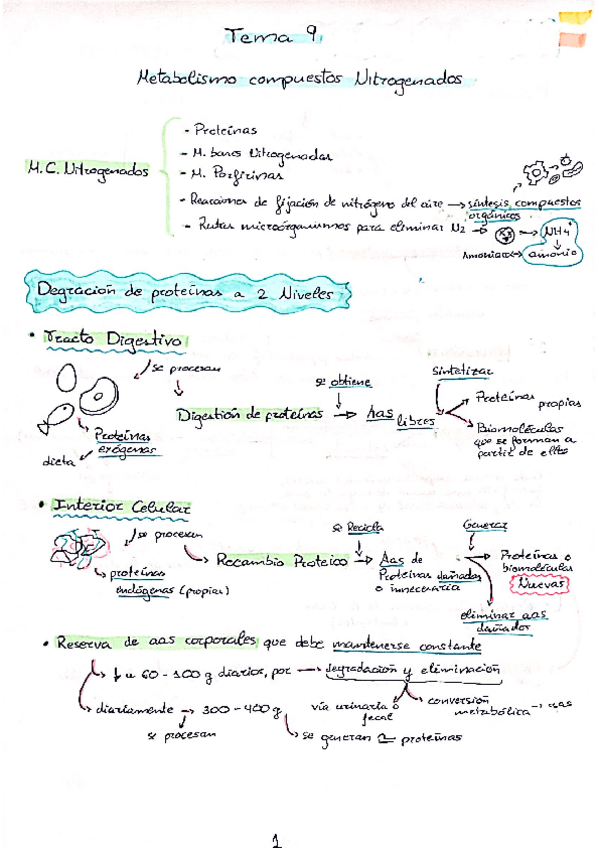 Tema 9
Metabolismo compuestos Nitrogenados
M.C. Nitrogenados
- Proteínas
- M. bases Nitrogenadas
- M. Porfirinas
- Reacciones de fijación de nitrógeno del aire → síntesis compuestos
orgánicos
- Rutas microórganismos para eliminar N2 → → NH4+
Amoniaco ← amonio
Degración de proteínas a 2 Niveles
• Tracto Digestivo
se procesan
Proteínas
exógenas
dieta
Digestión de proteínas → Aas libres
se obtiene
Sintetizar
Proteínas propias
Biomoléculas
que se forman a
partir de ellos
• Interior Celular
se procesan
proteínas
endógenas (propias)
Recambio Proteico → Aas de
Proteínas dañadas
o innecesaria
se Recicla
Generar
Proteínas o
biomoléculas
Nuevas
eliminar aas
dañados
• Reserva de aas corporales que debe mantenerse constante
↓ 60 - 100 g diarios, por → degradación y eliminación
vía urinaria o
fecal
conversión
metabólica →
diariamente → 300 - 400 g
se procesan
se generan ≃ proteínas
1